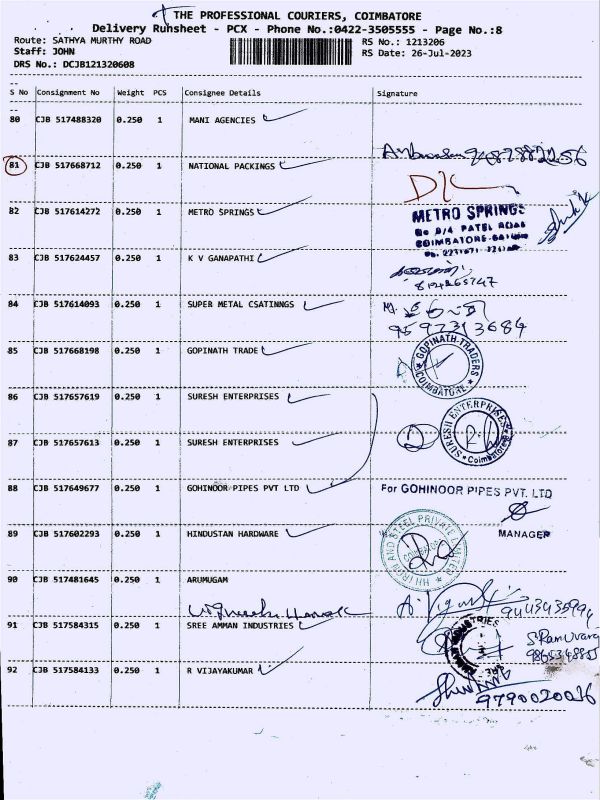 THE PROFESSIONAL COURIERS, COIMBATORE
Delivery Runsheet - PCX - Phone No.:0422-3505555 - Page No.:8
Route: SATHYA MURTHY ROAD
RS No.: 1213206
Staff: JOHN
RS Date: 26-Jul-2023
DRS No.: DCJB121320608
S No Consignment No Weight PCS Consignee Details Signature
80 CJB 517488320 0.250 1 MANI AGENCIES
81 CJB 517668712 0.250 1 NATIONAL PACKINGS
82 CJB 517614272 0.250 1 METRO SPRINGS
METRO SPRINGS
PATEL ROAD
COIMBATORE
83 CJB 517624457 0.250 1 K V GANAPATHI
84 CJB 517614093 0.250 1 SUPER METAL CSATINNGS
9597313684
85 CJB 517668198 0.250 1 GOPINATH TRADE
GOPINATH TRADERS
COIMBATORE
86 CJB 517657619 0.250 1 SURESH ENTERPRISES
SURESH ENTERPRISES
Coimbatore
87 CJB 517657613 0.250 1 SURESH ENTERPRISES
88 CJB 517649677 0.250 1 GOHINOOR PIPES PVT LTD
For GOHINOOR PIPES PVT. LTD
MANAGER
89 CJB 517602293 0.250 1 HINDUSTAN HARDWARE
HH IRON AND STEEL PRIVATE LIMITED
COIMBATORE
90 CJB 517481645 0.250 1 ARUMUGAM
91 CJB 517584315 0.250 1 SREE AMMAN INDUSTRIES
92 CJB 517584133 0.250 1 R VIJAYAKUMAR
9790020016